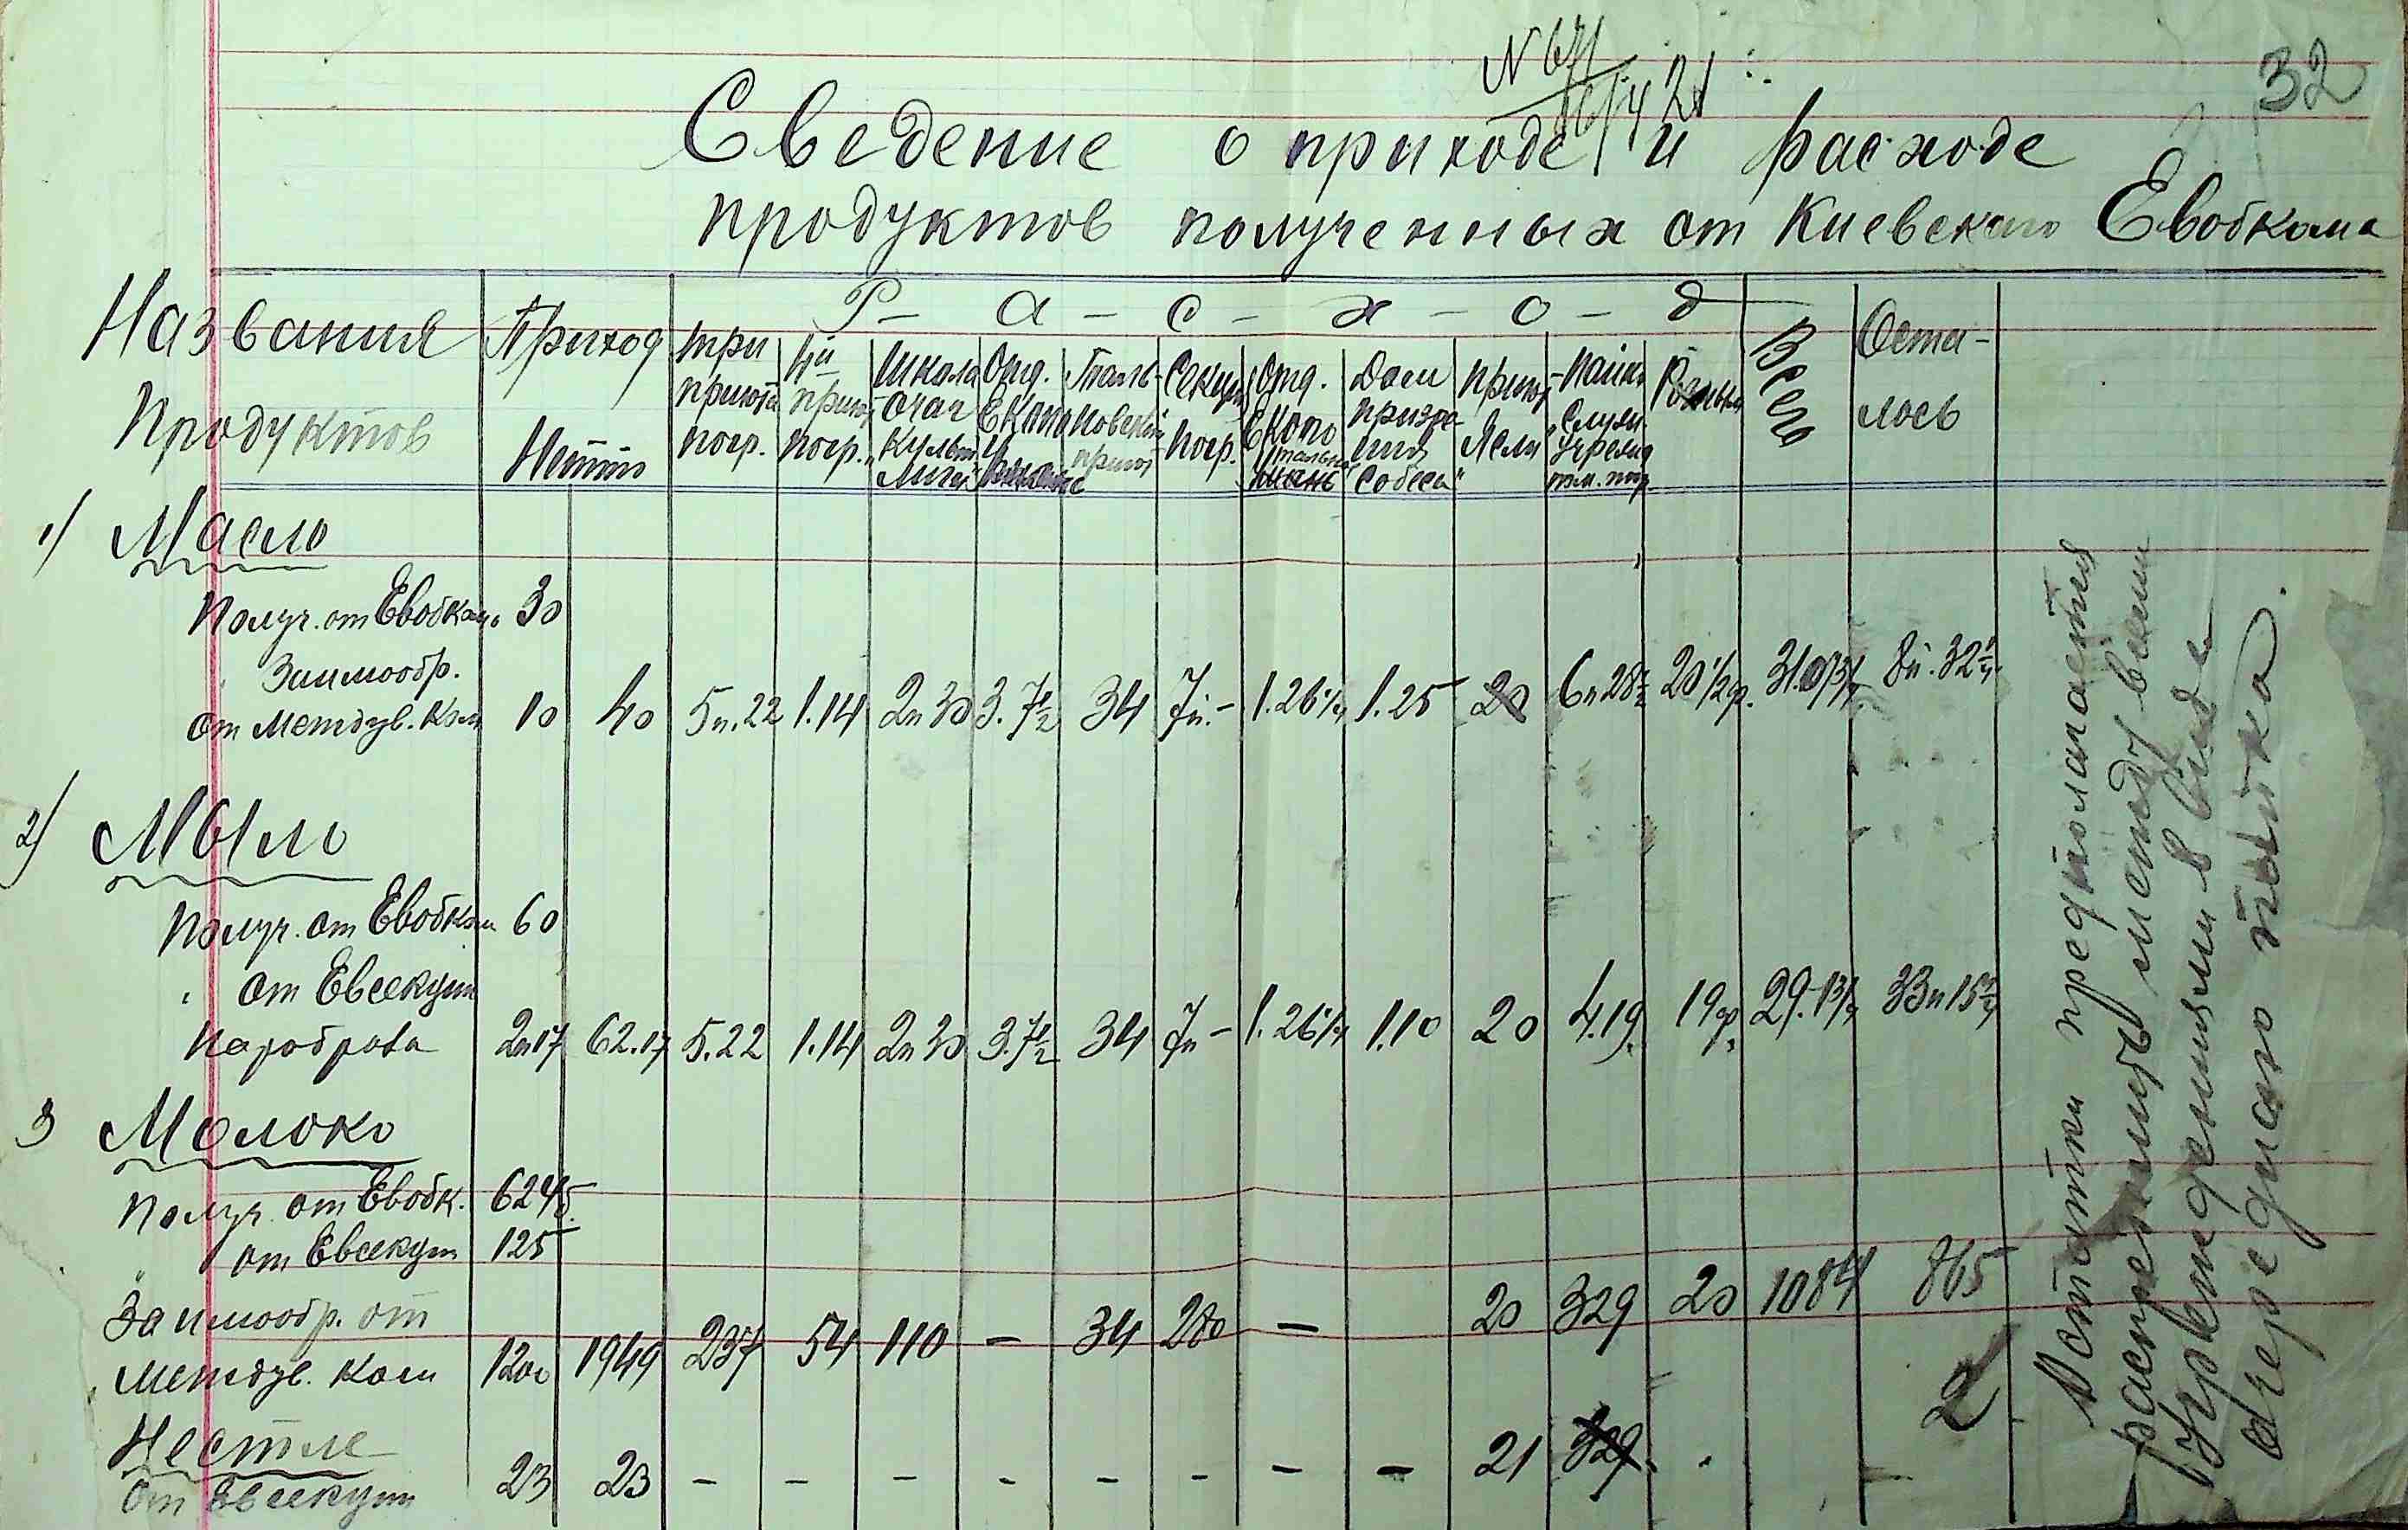 32
N 671
16/4 21
Сведение о приходе и расходе
продуктов полученных от Киевскаго Евобкома
Названия Продуктов
Приход Нетто
Р-а-с-х-о-д
три приюта погр.
4й приют погр.
Школа очаг "Культ Лиги"
Отд. ЕКопо
Тальновский приют
Секция погр.
Отд. ЕКопо
Дом призрения Собеса"
приют Ясли
Пайки служ. учрежд
Всего
Оста-
лось
1) Масло
Получ. от Евобкома 30
Заимообр.
от Междув. Ком 10 40 5п.22 1.14 2п30 3.7½ 34 7п.- 1.26¼ 1.25 20 6п28½ 20½ф. 8п.32¼
2) Мыло
Получ. от Евобком 60
" от Евсекции
Наробраза 2п17 62.17 5.22 1.14 2п30 3.7½ 34 7п- 1.26¼ 1.10 20 4.19 19ф 29.1¾ 33п15¼
3 Молоко
Получ от Евобк. 6245
" от Евсекции 125
Заимообр. от
Междув. Ком 1200 1949 237 54 110 - 34 280 - 20 329 20 1084 865
Нестле
от Евсекции 23 23 - - - - - - - - 21 329 2
Остатки предполагается
распределить между всеми
учреждениями в виде
очередного пайка.